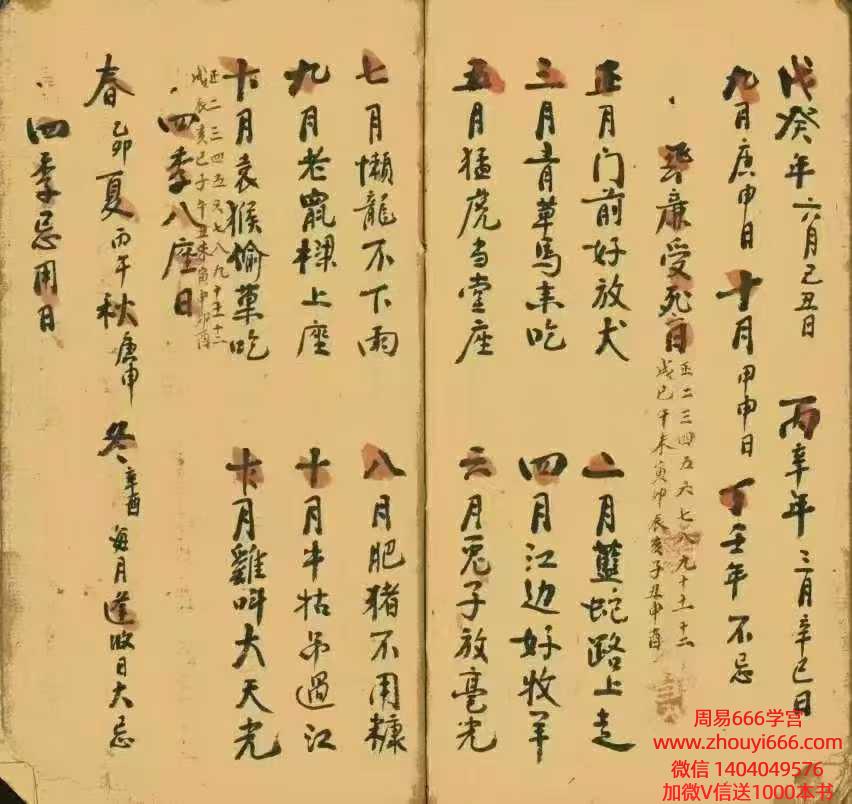 戊癸年六月己丑日 丙辛年三月辛巳日
九月庚申日 十月甲申日 丁壬年不忌
廉受死日
正二三四五六七八九十十一十二
戌巳午未寅卯辰亥子丑申酉
正月门前好放犬 二月蓝蛇路上走
三月青草馬来吃 四月江边好牧羊
五月猛虎当堂座 六月兎子放毫光
七月懒龍不下雨 八月肥猪不用糠
九月老鼠樑上座 十月牛牯吊過江
十一月袁猴偷草吃 十二月雞呌大天光
正二三四五六七八九十十一十二
戌辰亥巳子午丑未寅申卯酉
四季八座日
春乙卯夏丙午秋庚申 冬辛酉每月逢收日大忌
四季忌用日
周易666学宫
www.zhouyi666.com
微信 1404049576
加微V信送1000本书